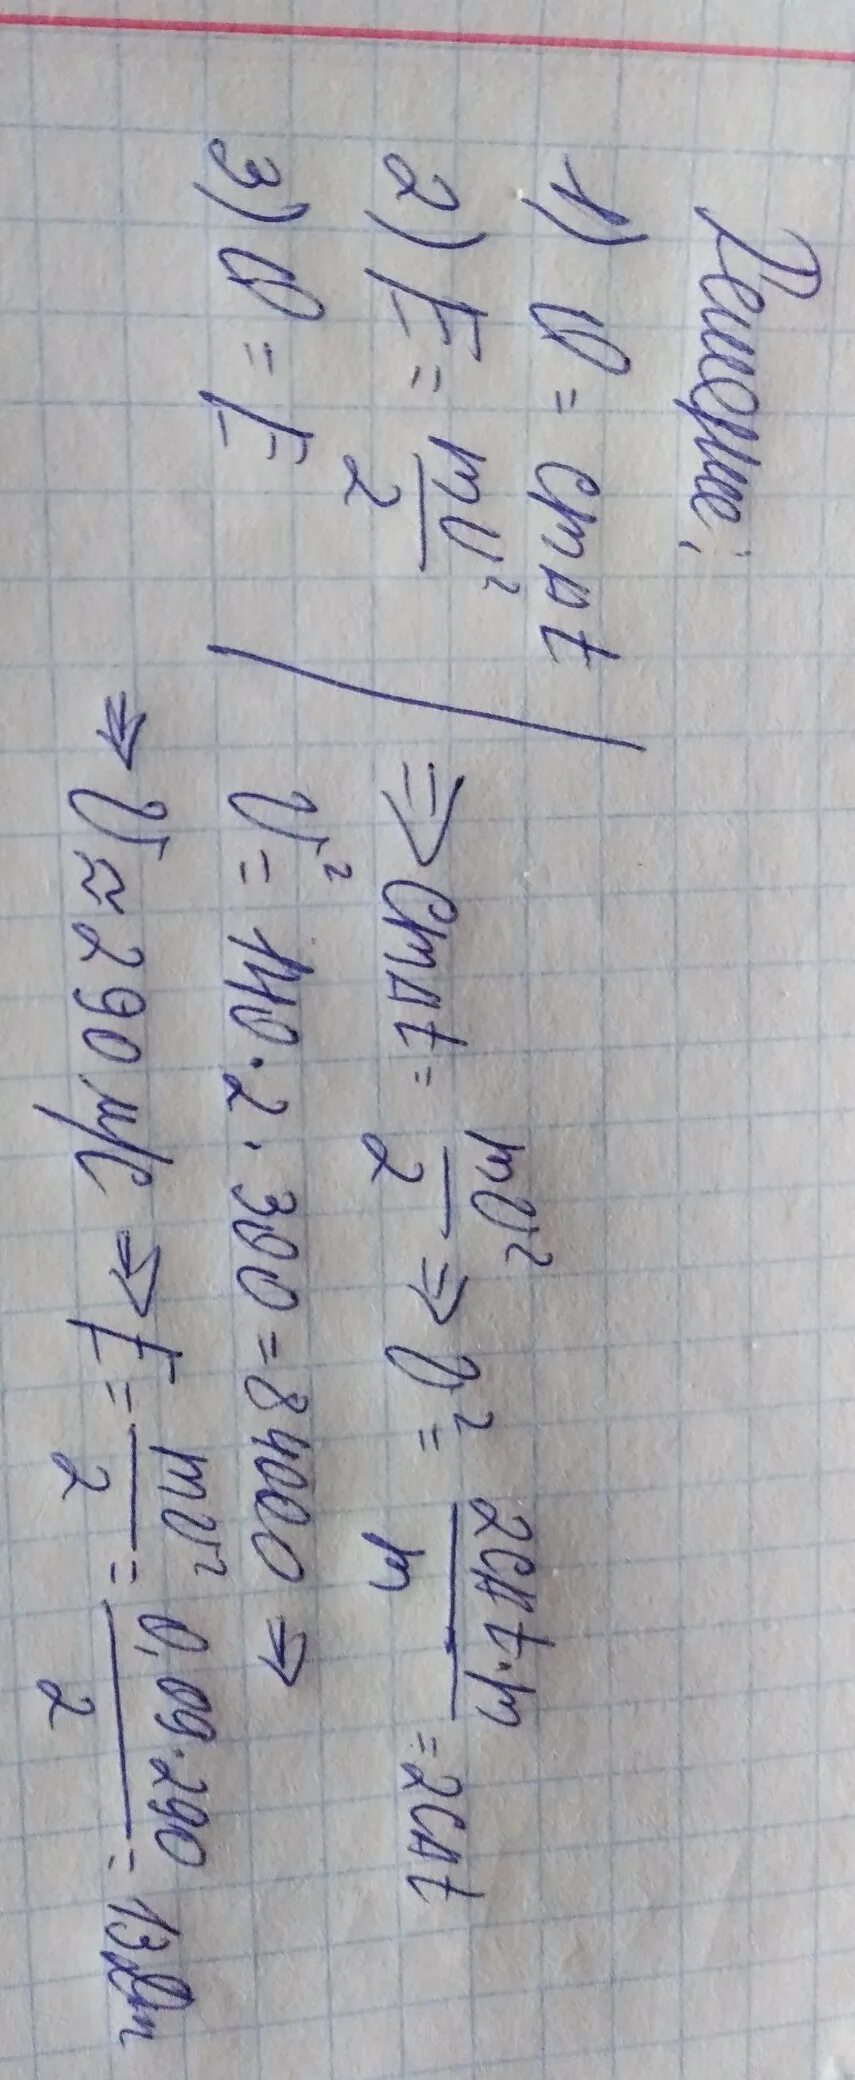 Решение:
1) Q = cmΔt
2) E = mv²/2
3) Q = E
⇒ cmΔt = mv²/2 ⇒ v² = 2cΔt·m/m = 2cΔt
v² = 140·2·300 = 84000 ⇒
⇒ v ≈ 290 м/с ⇒ E = mv²/2 = 0,09·290/2 = 13Дж